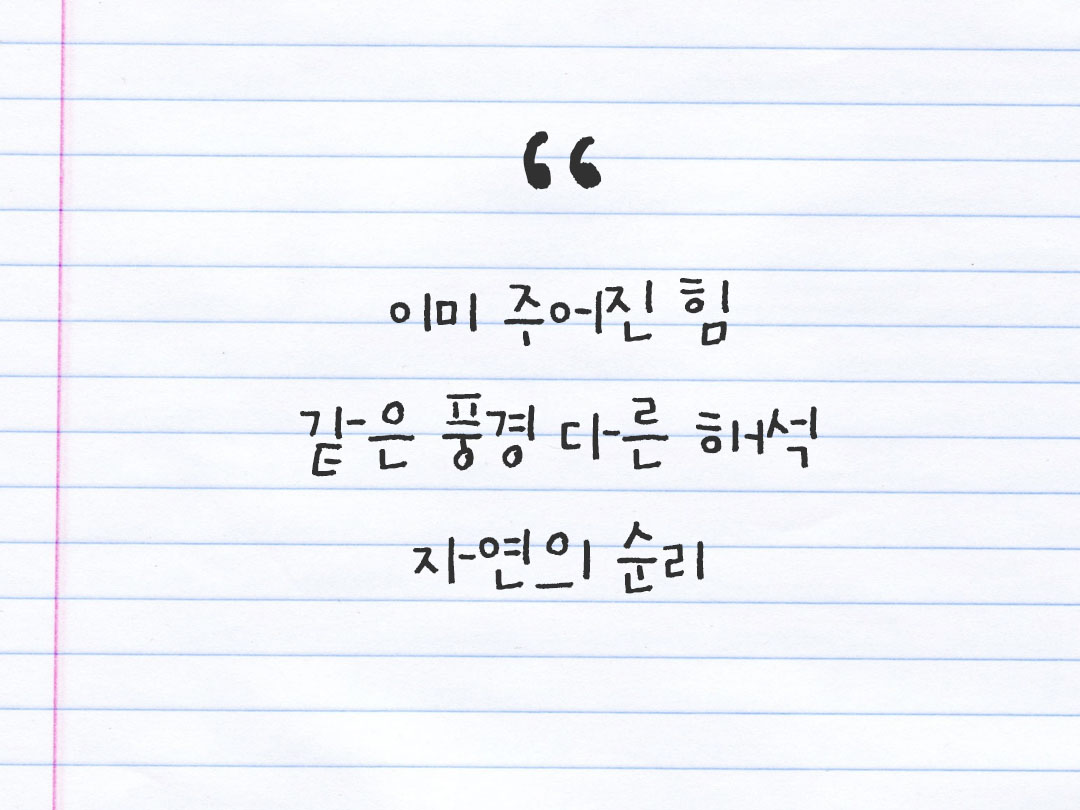 “
이미 주어진 힘
같은 풍경 다른 해석
자연의 순리